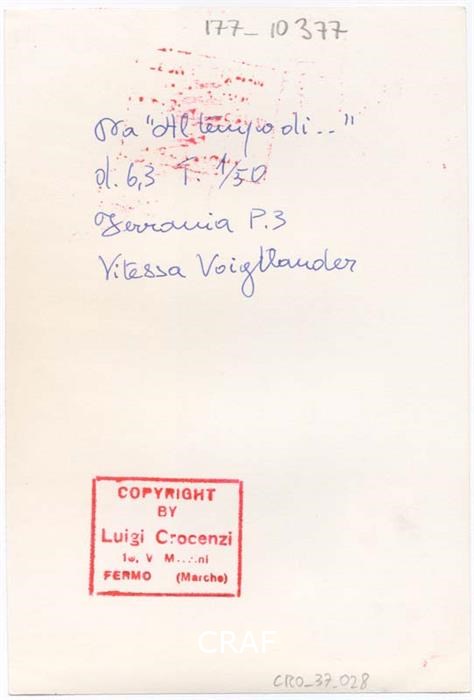 177-10377
Da "Al tempo di..."
d. 6,3 T. 1/50
Ferrania P.3
Vitessa Voigtlander
COPYRIGHT
BY
Luigi Crocenzi
V
FERMO (Marche)
CRAF
CRO_37_028